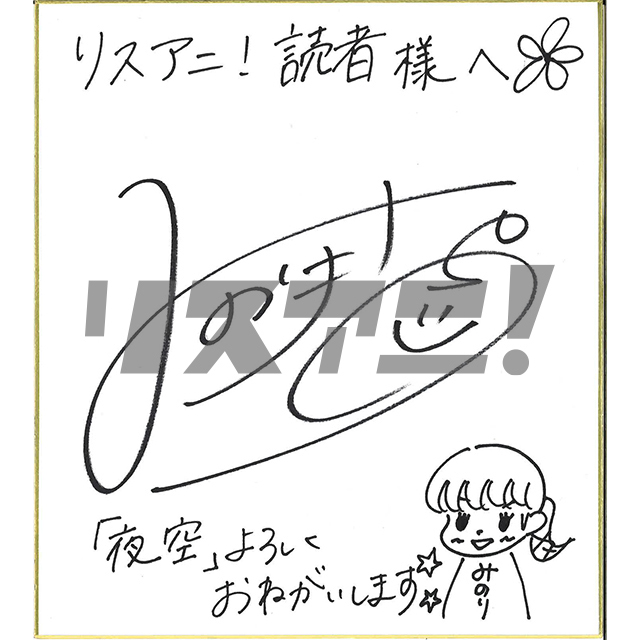 リスアニ!読者様へ
リスアニ!
「夜空」よろしく
おねがいします
みのり